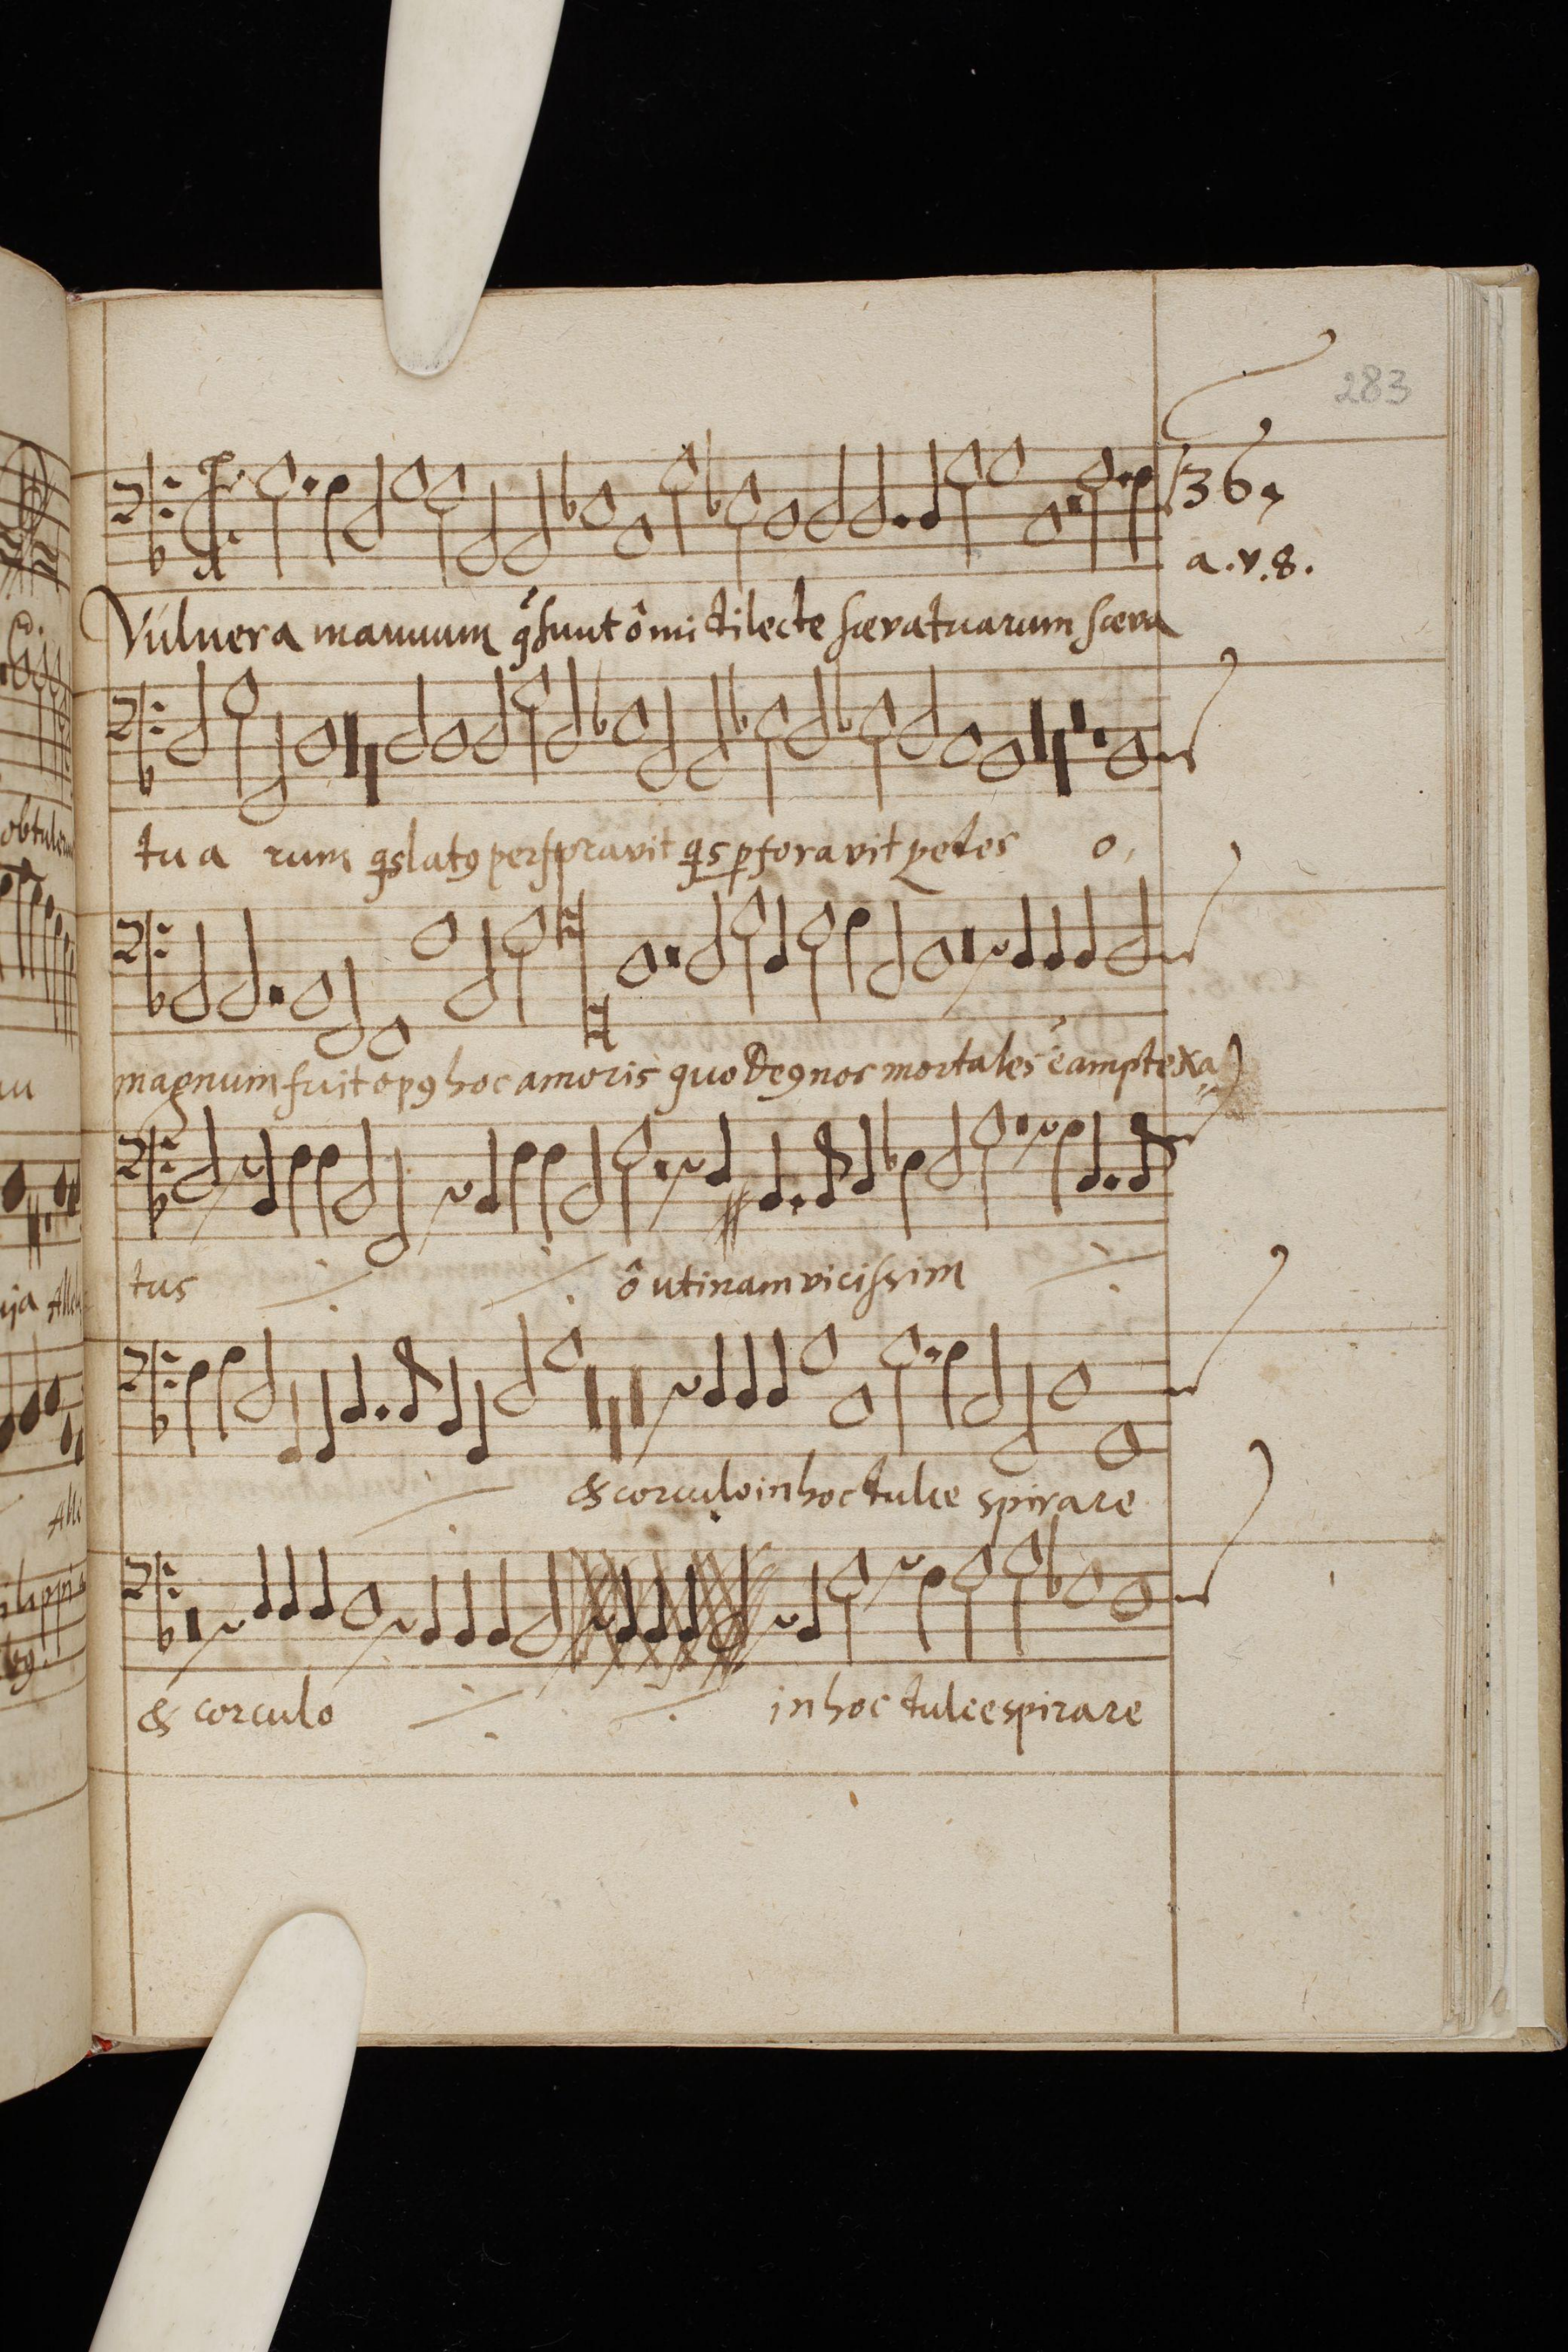 283
36
a.v.8.
Vulnera manuum qͥsunt ô mi dilecte sæva tuarum sæva
tu a rum qͥs latꝰ perforavit qͥs ꝑforavit pedes o,
magnum fuit opꝰ hoc amoris quo Deꝰ nos mortales ē amplexa
tus ô utinam vicissim
& corculo in hoc dulce spirare
& corculo in hoc dulce spirare
obtule
Alle